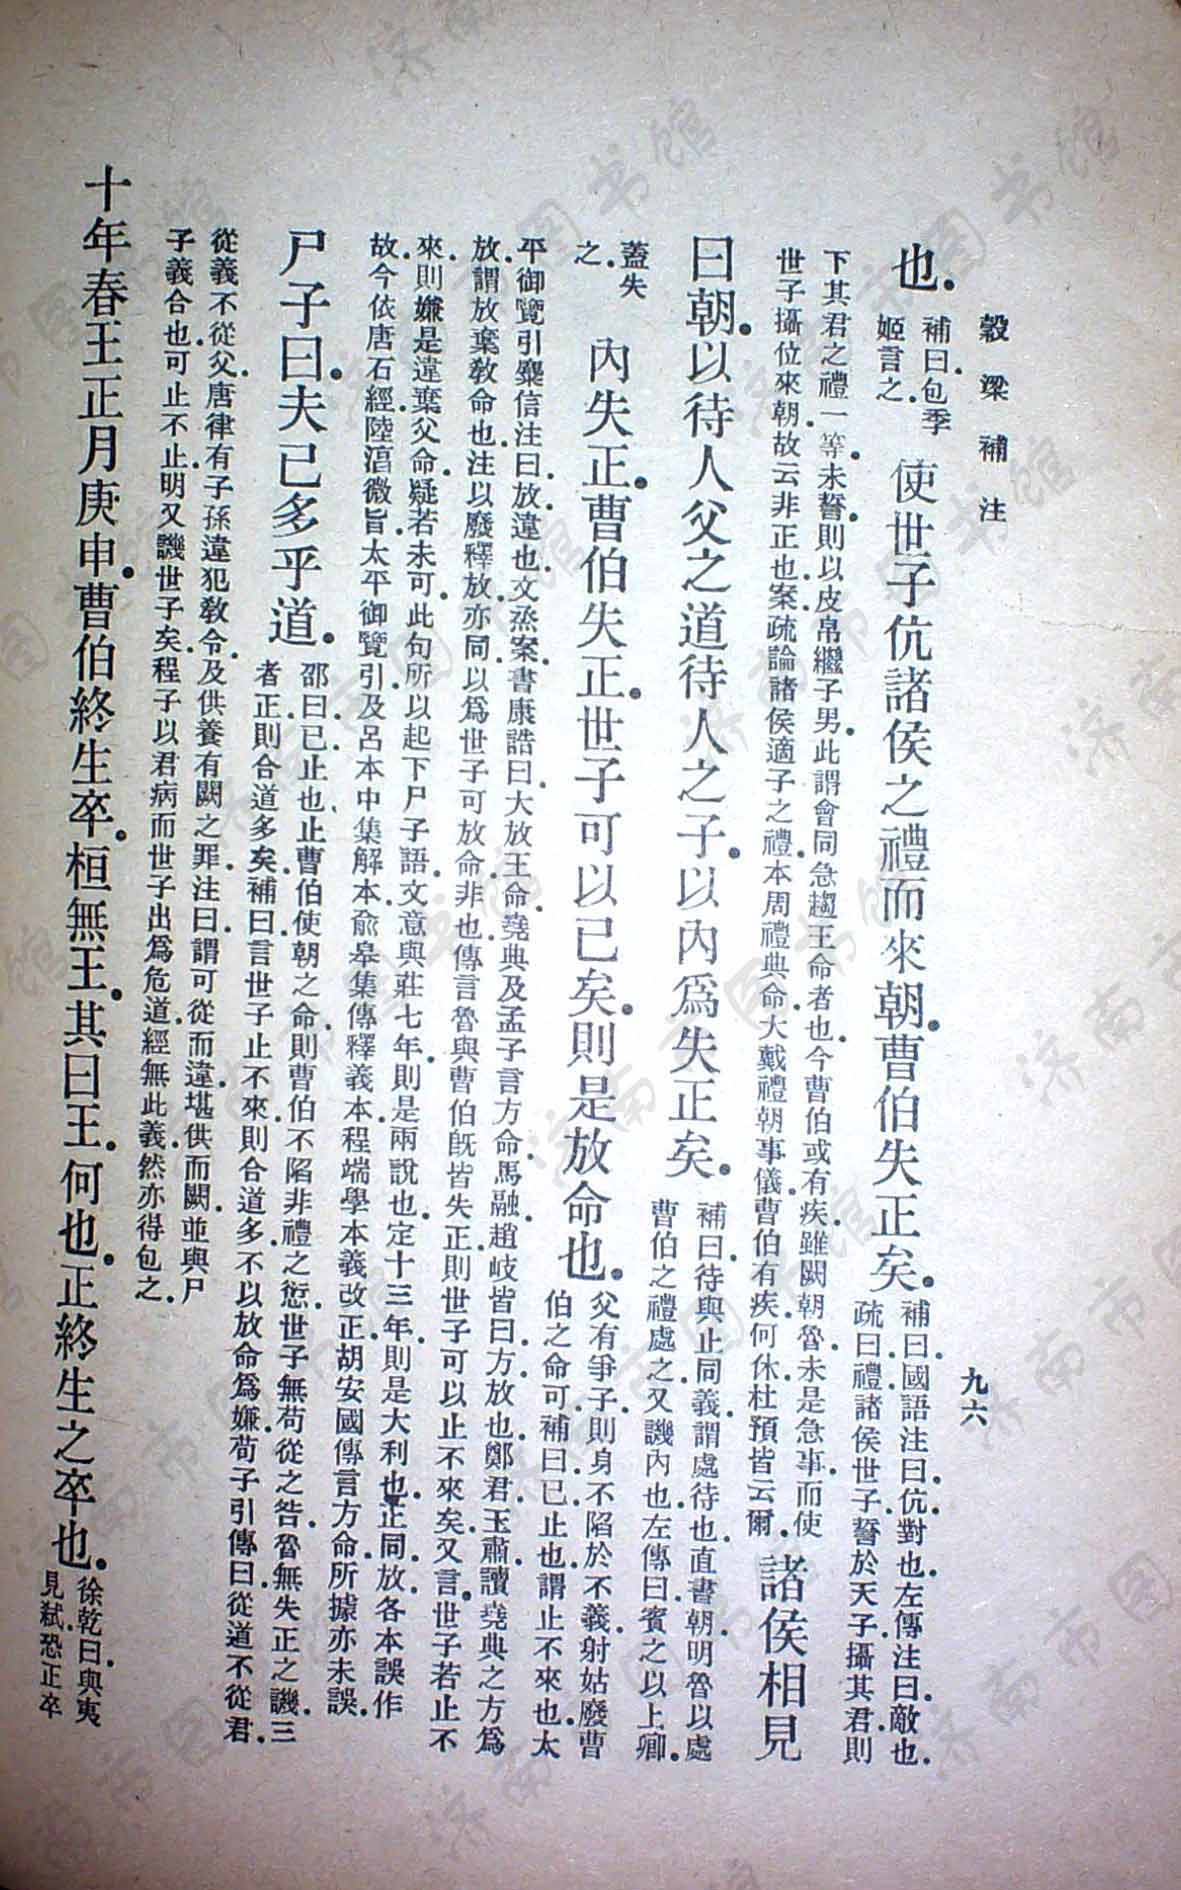 穀梁補注
九六
也.
補曰.包季
姬言之.
使世子伉諸侯之禮而來朝.曹伯失正矣.
補曰.國語注曰.伉.對也.左傳注曰.敵也.
疏曰.禮.諸侯世子.誓於天子.攝其君.則
下其君之禮一等.未誓.則以皮帛繼子男.此謂會同急趨王命者也.今曹伯或有疾.雖闕朝魯.未是急事.而使
世子攝位來朝.故云非正也.案.疏論諸侯適子之禮.本周禮典命.大戴禮朝事儀.曹伯有疾.何休杜預皆云爾.
諸侯相見
曰朝.以待人父之道待人之子.以內爲失正矣.
補曰.待與止同義.謂處待也.直書朝.明魯以處
曹伯之禮處之.又譏內也.左傳曰.賓之以上卿.
蓋失
之.
內失正.曹伯失正.世子可以已矣.則是放命也.
父有爭子.則身不陷於不義.射姑廢曹
伯之命可.補曰.已.止也.謂止不來也.太
平御覽引麋信注曰.放.違也.文烝案.書康誥曰.大放王命.堯典及孟子言方命.馬融趙岐皆曰.方.放也.鄭君王肅讀堯典之方爲
放.謂放棄敎命也.注以廢釋放.亦同.以爲世子可放命.非也.傳言魯與曹伯旣皆失正.則世子可以止不來矣.又言.世子若止不
來.則嫌是違棄父命.疑若未可.此句所以起下尸子語.文意與莊七年.則是兩說也.定十三年.則是大利也.正同.放各本誤作
故.今依唐石經.陸淳微旨.太平御覽引.及呂本中集解本.俞皋集傳釋義本.程端學本義改正.胡安國傳言方命.所據亦未誤.
尸子曰.夫已多乎道.
邵曰.已.止也.止曹伯使朝之命.則曹伯不陷非禮之愆.世子無苟從之咎.魯無失正之譏.三
者正.則合道多矣.補曰.言世子止不來.則合道多.不以放命爲嫌.荀子引傳曰.從道不從君.
從義不從父.唐律有子孫違犯敎令.及供養有闕之罪.注曰.謂可從而違.堪供而闕.並與尸
子義合也.可止不止.明又譏世子矣.程子以君病而世子出爲危道.經無此義.然亦得包之.
十年春王正月庚申.曹伯終生卒.桓無王.其曰王.何也.正終生之卒也.
徐乾曰.與夷
見弒.恐正卒